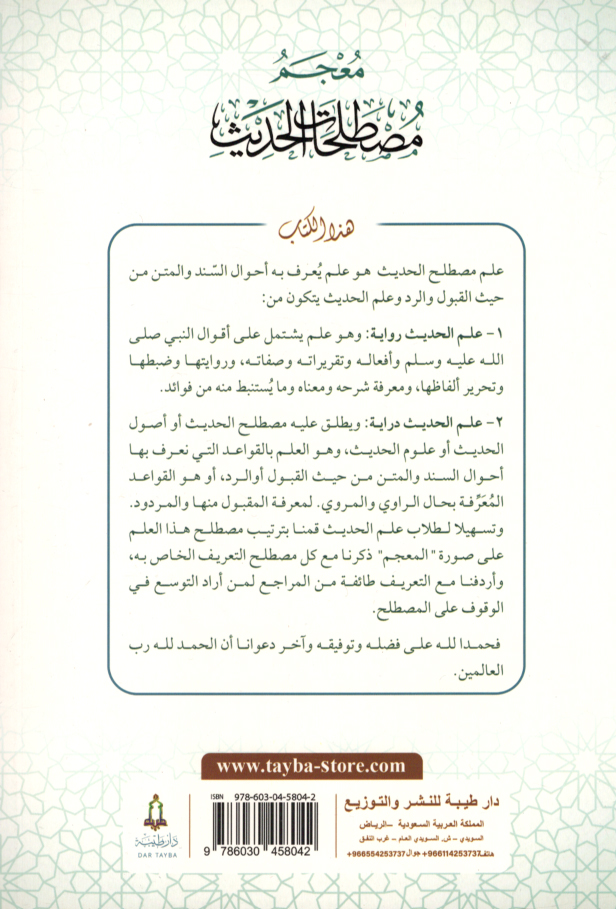 مُعْجَمُ
مُصْطَلَحَاتِ الحَدِيْثِ
هذا الكتاب
علم مصطلح الحديث هو علم يُعرف به أحوال السّند والمتن من
حيث القبول والرد وعلم الحديث يتكون من:
١- علم الحديث رواية: وهو علم يشتمل على أقوال النبي صلى
الله عليه وسلم وأفعاله وتقريراته وصفاته، وروايتها وضبطها
وتحرير ألفاظها، ومعرفة شرحه ومعناه وما يُستنبط منه من فوائد.
٢- علم الحديث دراية: ويطلق عليه مصطلح الحديث أو أصول
الحديث أو علوم الحديث، وهو العلم بالقواعد التي نعرف بها
أحوال السند والمتن من حيث القبول أوالرد، أو هو القواعد
المُعَرِّفة بحال الراوي والمروي. لمعرفة المقبول منها والمردود.
وتسهيلا لطلاب علم الحديث قمنا بترتيب مصطلح هذا العلم
على صورة "المعجم" ذكرنا مع كل مصطلح التعريف الخاص به،
وأردفنا مع التعريف طائفة من المراجع لمن أراد التوسع في
الوقوف على المصطلح.
فحمدا لله على فضله وتوفيقه وآخر دعوانا أن الحمد لله رب
العالمين.
www.tayba-store.com
دار طيبة للنشر والتوزيع
المملكة العربية السعودية -الرياض
السويدي - ش. السويدي العام - غرب النفق
هاتف:966114253737+ جوال:966554253737+
ISBN 978-603-04-5804-2
9 786030 458042
دار طيبة
DAR TAYBA